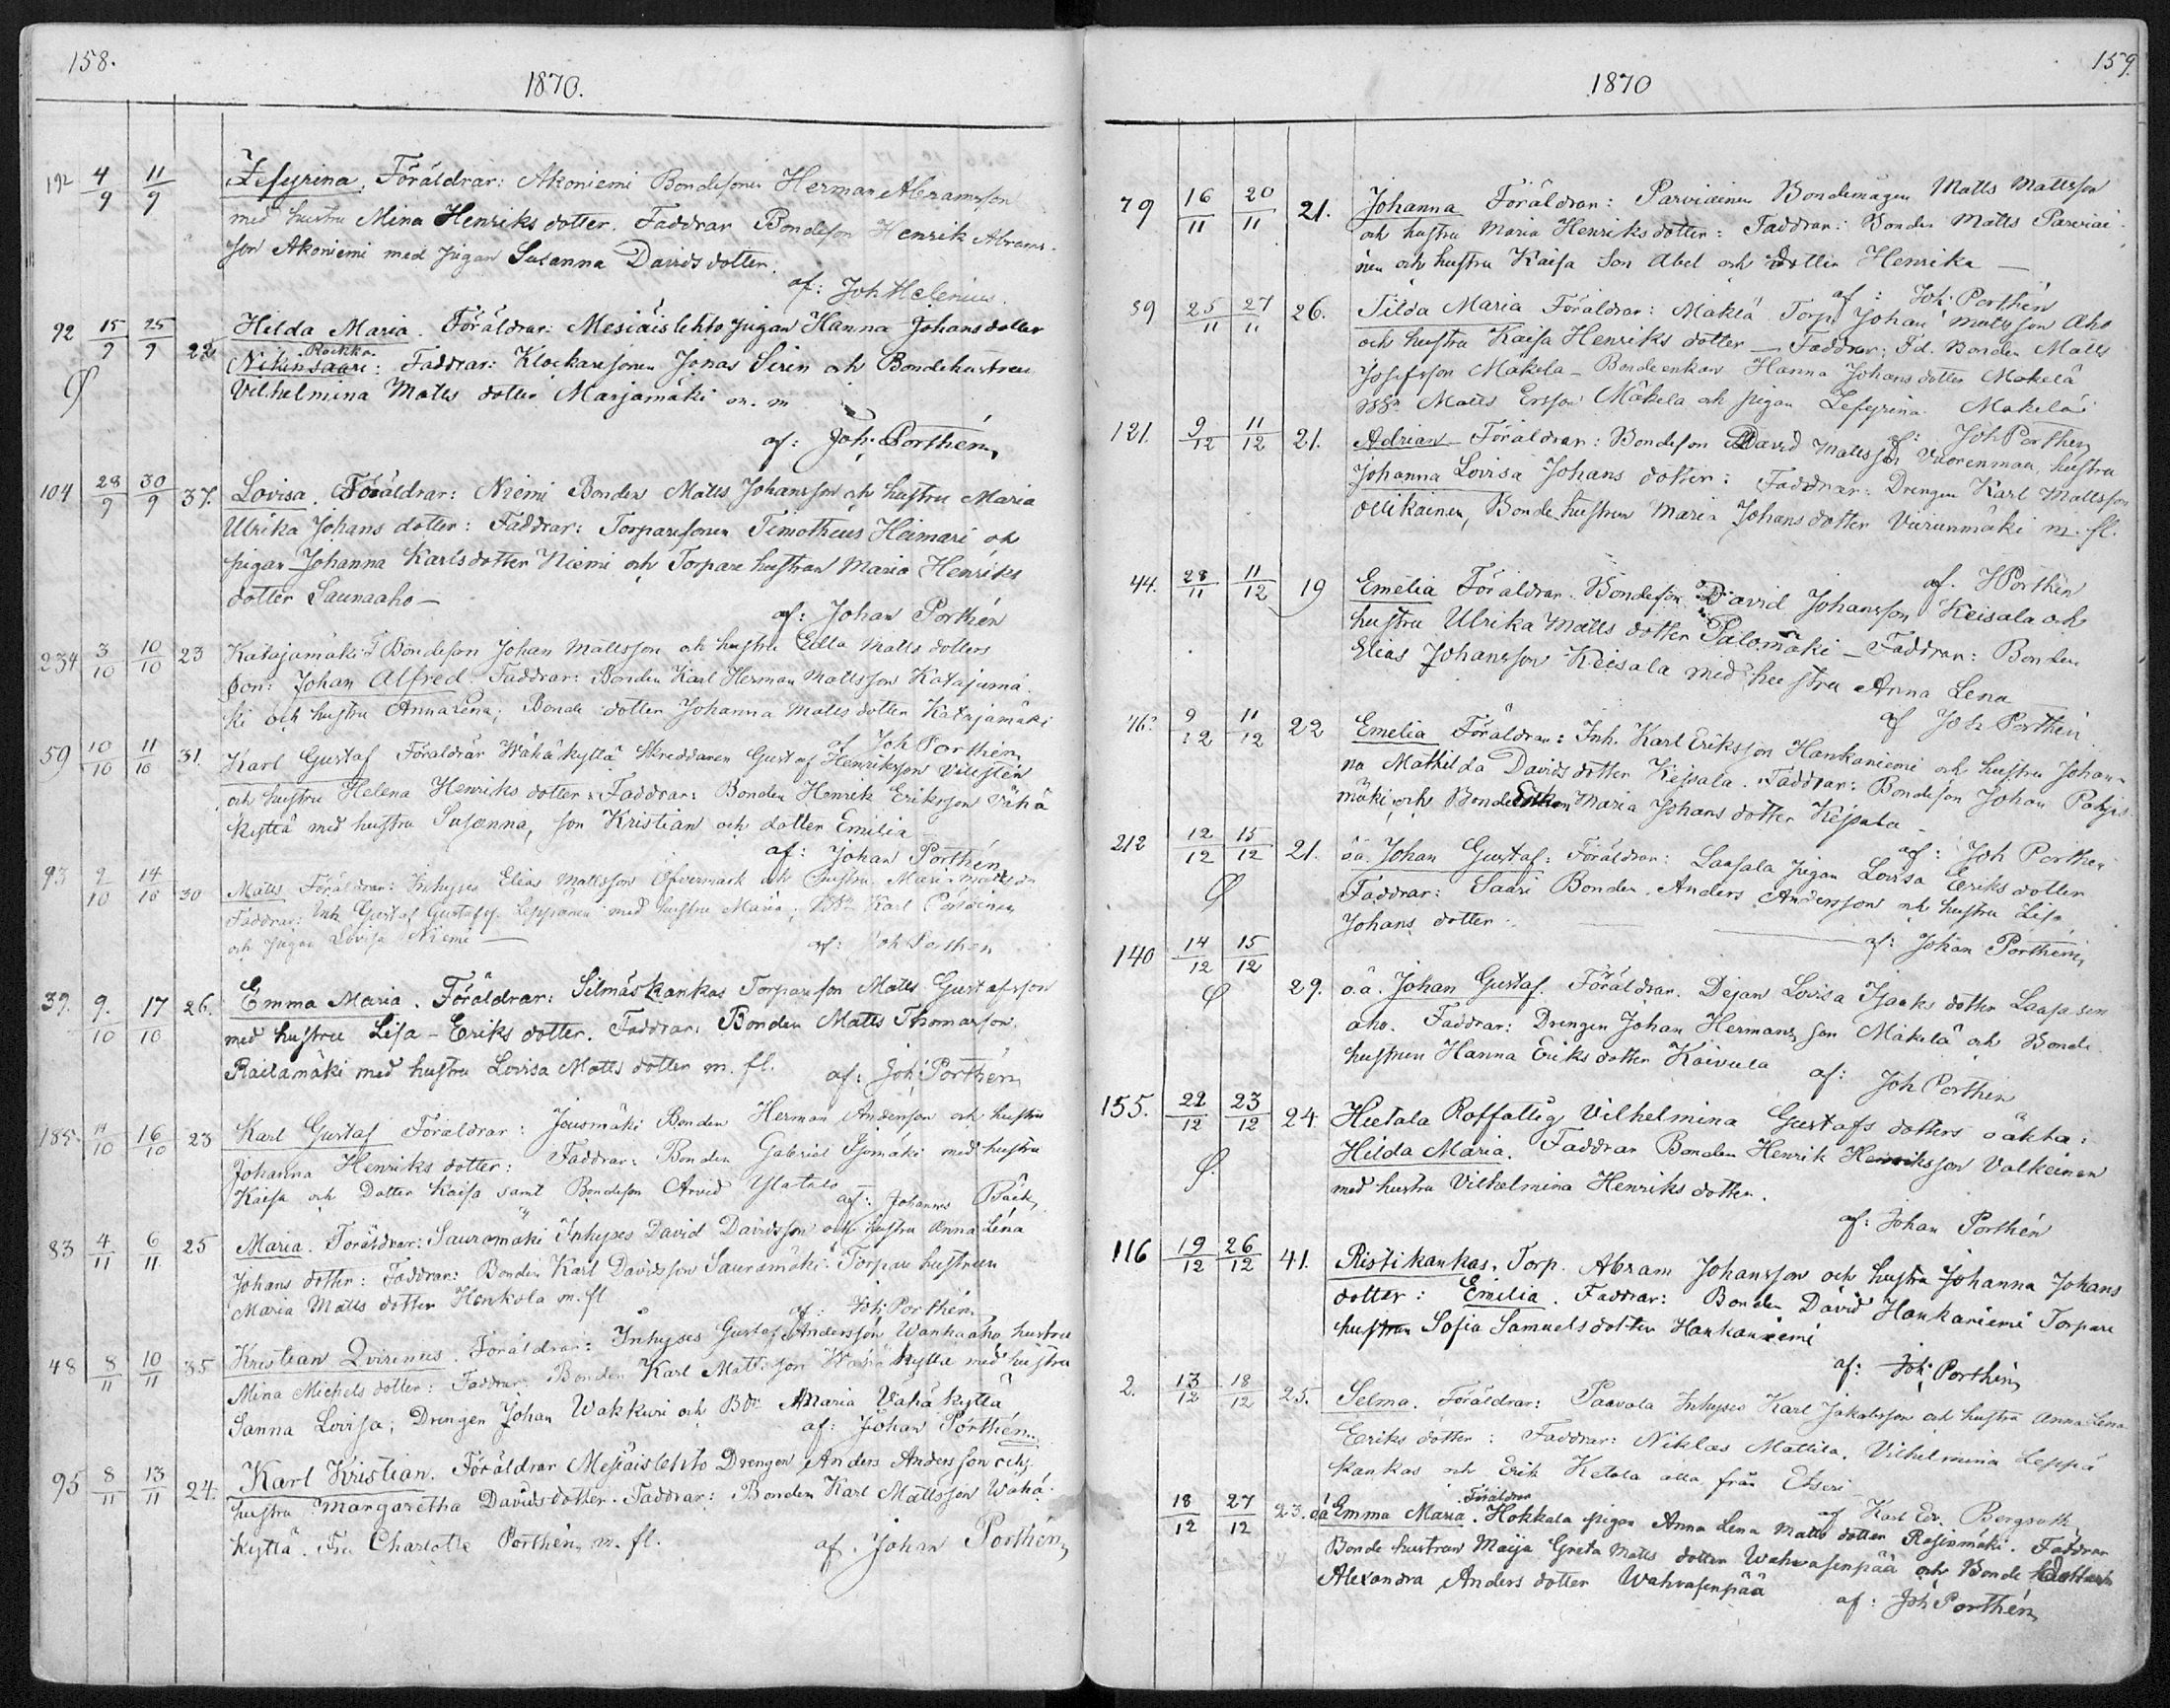 158.
1870.
192 4/9 11/9 Zefyrina, Föräldrar: Akoniemi Bondesonen Herman Abramsson
med hustru Mina Henriks dotter. Faddrar Bondeson Henrik Abrams-
son Akoniemi med pigan Susanna Davids dotter.
af: Joh Helenius.
92 15/9 25/9 22 Hilda Maria. Föräldrar: Mesiäislehto pigan Hanna Johansdotter
Rockka
Nikinsaari: Faddrar: Klockaresonen Jonas Siren och Bondehustrun
Vilhelmina Matts dotter Marjamäki m. m
af: Joh: Porthén
104 28/9 30/9 37. Lovisa. Föräldrar: Niemi Bonden Matts Johansson och hustru Maria
Ulrika Johans dotter: Faddrar: Torparesonen Timotheus Heimari och
pigan Johanna Karlsdotter Niemi och Torpare hustran Maria Henriks
dotter Saunaaho —
af: Johan Porthén
234 3/10 10/10 23 Katajamäki Bondeson Johan Mattsson och hustru Edla Matts dotters
son: Johan Alfred. Faddrar: Bonden Karl Herman Mattsson Katajamä-
ki och hustru Annalena; Bonde dotter Johanna Matts dotter Katajamäki
af Joh Porthén
59 10/10 11/10 31. Karl Gustaf Föräldrar Wähäkyttä Skreddaren Gustaf Henriksson
och hustru Helena Henriks dotter: Faddrar: Bonden Henrik Eriksson Vähä
kyttä med hustru Susanna, son Kristian och dotter Emilia —
af: Johan Porthén
93 9/10 14/10 30 Matts Föräldrar: Inhyses Elias Mattsson Öfvermark och hustru
Faddrar: Inh. Gustaf Gustafss. Leppänen med hustru Maria; Karl
och pigan Lovisa Niemi —
af: Joh Porthén
39. 9./10 17/10 26. Emma Maria. Föräldrar: Silmäskankas Torpareson Matts Gustafsson
med hustru Lisa Eriks dotter. Faddrar: Bonden Matts Thomasson
Railamäki med hustru Lovisa Matts dotter m. fl.
af: Joh: Porthén
185. 11/10 16/10 23 Karl Gustaf Föräldrar: Jousmäki Bonden Herman Andersson och hustru
Johanna Henriks dotter: Faddrar: Bonden Gabriel med hustru
Kaisa och Dotter Kaisa samt Bondeson Arvid Ylätalo —
af: Johannes Bäck
83 4/11 6/11 25 Maria. Föräldrar: Sauramäki Inhyses David Davidsson och hustru Anna Lena
Johans dotter: Faddrar: Bonden Karl Davidsson Sauramäki. Torpare hustrun
Maria Matts dotter Honkola m. fl
af: Joh: Porthén
48 8/11 10/11 35 Kristian Qvirinus. Föräldrar: Inhyses Gustaf Andersson Wanhaaho hustru
Mina Michels dotter: Faddrar: Bonden Karl Mattsson Wähä kyttä med hustru
Sanna Lovisa; Drengen Johan Wakkuri och Bdr Maria Vähä kyttä
af: Johan Porthén
95 8/11 13/11 24. Karl Kristian. Föräldrar Mesiäislehto Drengen Anders Andersson och
hustru Margaretha Davidsdotter. Faddrar: Bonden Karl Mattsson Wähä-
kyttä. Fru Charlotte Porthén m. fl.
af: Johan Porthén
159.
1870
79 16/11 20/11 21. Johanna Föräldrar: Parviainen Bondemågen Matts Mattsson
och hustru Maria Henriks dotter: Faddrar: Bonden Matts Parviai-
nen och hustru Kaisa Son Abel och Dotter Henrika —
af: Joh: Porthén
59 25/11 27/11 26. Tilda Maria Föräldrar: Mäkelä Torp. Johan Mattsson Aho
och hustru Kaisa Henriks dotter — Faddrar: Fd. Bonden Matts
Josefsson Mäkelä — Bondeenkan Hanna Johans dotter Mäkelä
Matts Ersson Mäkelä och pigan Zefyrina Mäkelä
af: Joh Porthén
121. 9/12 11/12 21. Adrian Föräldrar: Bondeson David Mattsson Vuorenmaa, hustru
Johanna Lovisa Johans dotter: Faddrar: Drengen Karl Mattsson
Ollikainen, Bonde hustrun Maria Johans dotter Viirunmäki m. fl.
af. J Porthén
44. 28/11 11/12 19 Emelia Föräldrar. Bondeson David Johansson Keisala och
hustru Ulrika Matts dotter Palomäki — Faddrar: Bonden
Elias Johansson Keisala med hustru Anna Lena
af Joh Porthén
46. 9/12 11/12 22 Emelia Föräldrar: Inh. Karl Eriksson Hankaniemi och hustru Johan-
na Mathilda Davids dotter Keisala. Faddrar: Bondeson Johan
mäki, och Bonde Enkan Maria Johans dotter Keisala —
af: Joh Porthén
212 12/12 15/12 21. o.ä. Johan Gustaf: Föräldrar: Laasala pigan Lovisa Eriks dotter
Faddrar: Saari Bonden Anders Andersson och hustru Lisa
Johans dotter
af: Johan Porthén
140 14/12 15/12 29. o.ä. Johan Gustaf. Föräldrar. Dejan Lovisa Isaaks dotter Laasasen
aho. Faddrar: Drengen Johan Hermansson Mäkelä och Bonde
hustrun Hanna Eriks dotter Koivula
af: Joh Porthén
155. 22/12 23/12 24. Hietala Roffattig Vilhelmina Gustafs dotters oäkta:
Hilda Maria. Faddrar Bonden Henrik Henriksson Valkeinen
med hustru Vilhelmina Henriks dotter.
af: Johan Porthén
116 19/12 26/12 41. Ristikankas. Torp. Abram Johansson och hustru Johanna Johans
dotter: Emilia. Faddrar: Bonden David Hankaniemi Torpare
hustrun Sofia Samuels dotter Hankaniemi
af: Joh: Porthén
2. 13/12 18/12 25. Selma. Föräldrar: Paavola Inhyses Karl Jakobsson och hustru Anna Lena
Eriks dotter: Faddrar: Niklas Mattila, Vilhelmina Leppä
kankas och Erik Ketola alla från Etseri —
af Karl Edv. Bergroth
18/12 27/12 23. oä Emma Maria. Föräldrar Hokkala pigan Anna Lena Matts dotter Rasinmäki. Faddrar
Bonde hustrun Maija Greta Matts dotter Wahvasenpää och Bonde dottern
Alexandra Anders dotter Wahvasenpää
af: Joh Porthén